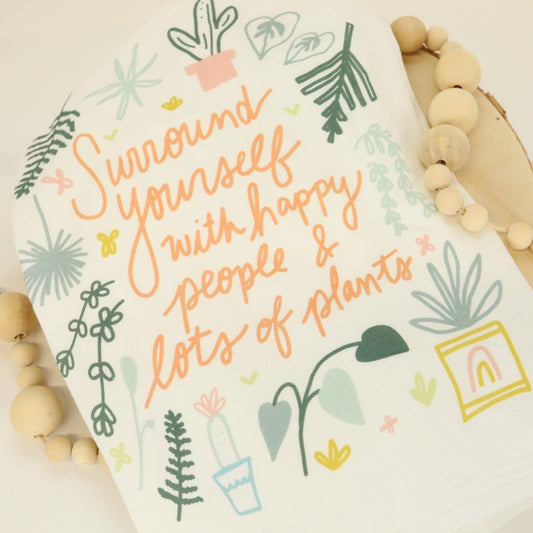 Surround
yourself
with happy
people &
lots of plants